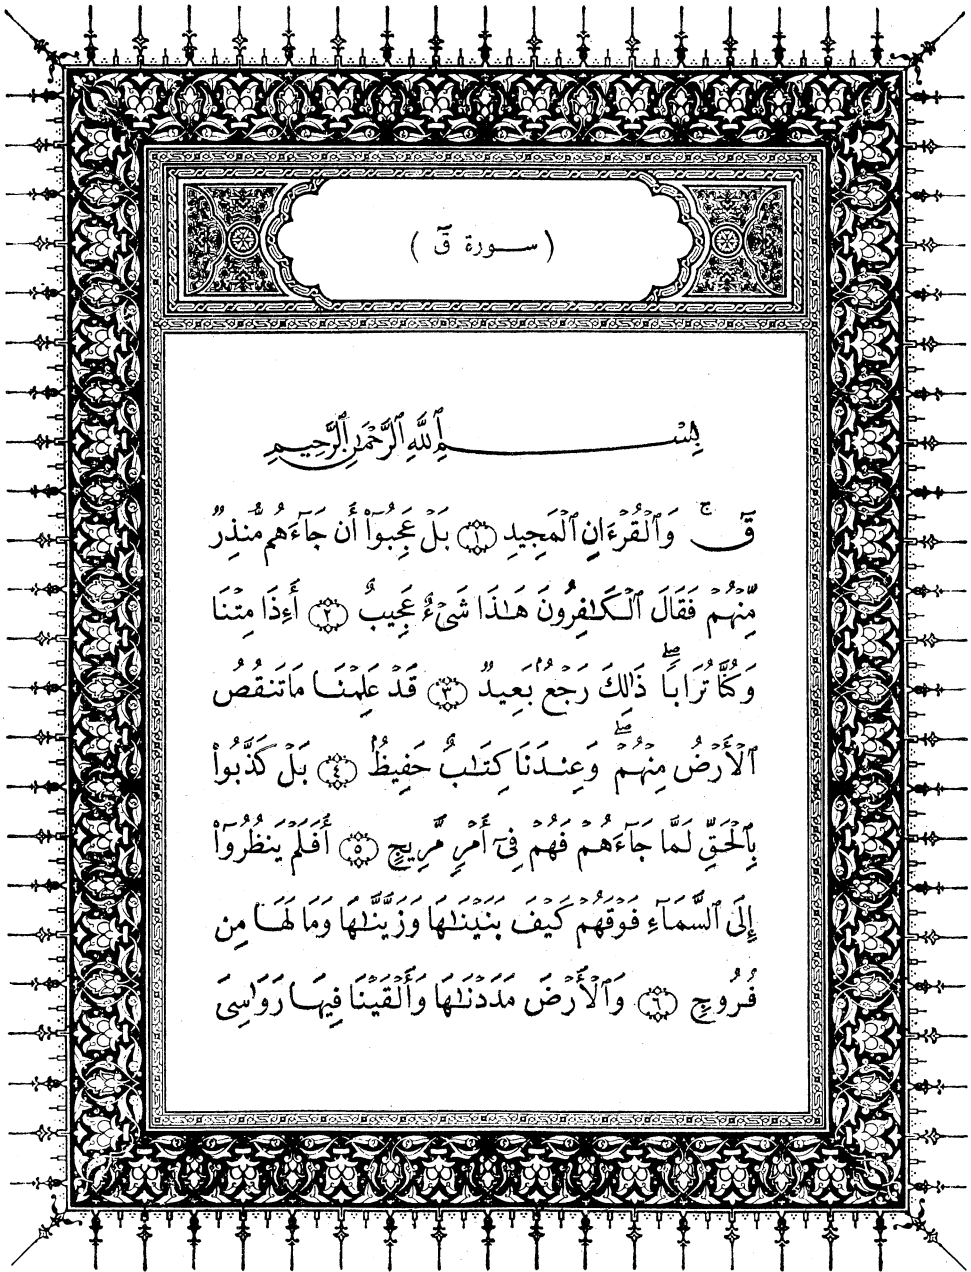 ( سورة قٓ )
بِسْمِ ٱللَّهِ ٱلرَّحْمَٰنِ ٱلرَّحِيمِ
قٓ ۚ وَٱلْقُرْءَانِ ٱلْمَجِيدِ ١ بَلْ عَجِبُوٓا۟ أَن جَآءَهُم مُّنذِرٌ
مِّنْهُمْ فَقَالَ ٱلْكَٰفِرُونَ هَٰذَا شَىْءٌ عَجِيبٌ ٢ أَءِذَا مِتْنَا
وَكُنَّا تُرَابًا ۖ ذَٰلِكَ رَجْعٌۢ بَعِيدٌ ٣ قَدْ عَلِمْنَا مَا تَنقُصُ
ٱلْأَرْضُ مِنْهُمْ ۖ وَعِندَنَا كِتَٰبٌ حَفِيظٌۢ ٤ بَلْ كَذَّبُوا۟
بِٱلْحَقِّ لَمَّا جَآءَهُمْ فَهُمْ فِىٓ أَمْرٍ مَّرِيجٍ ٥ أَفَلَمْ يَنظُرُوٓا۟
إِلَى ٱلسَّمَآءِ فَوْقَهُمْ كَيْفَ بَنَيْنَٰهَا وَزَيَّنَّٰهَا وَمَا لَهَا مِن
فُرُوجٍ ٦ وَٱلْأَرْضَ مَدَدْنَٰهَا وَأَلْقَيْنَا فِيهَا رَوَٰسِىَ